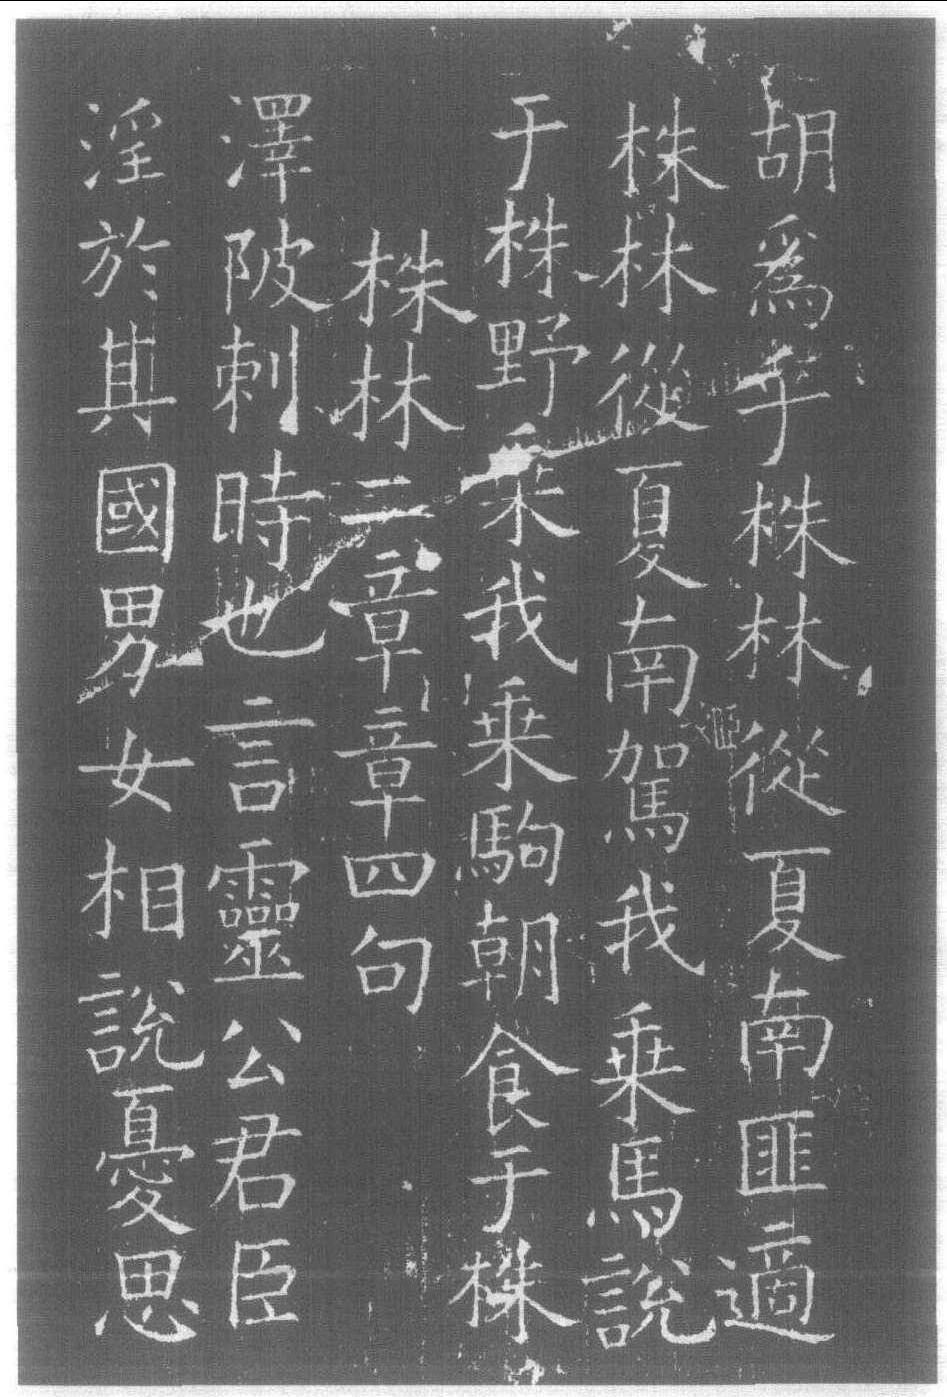 胡為乎株林從夏南匪適
株林從夏南駕我乘馬說
于株野乘我乘駒朝食于株
株林二章章四句
澤陂刺時也言靈公君臣
淫於其國男女相說憂思